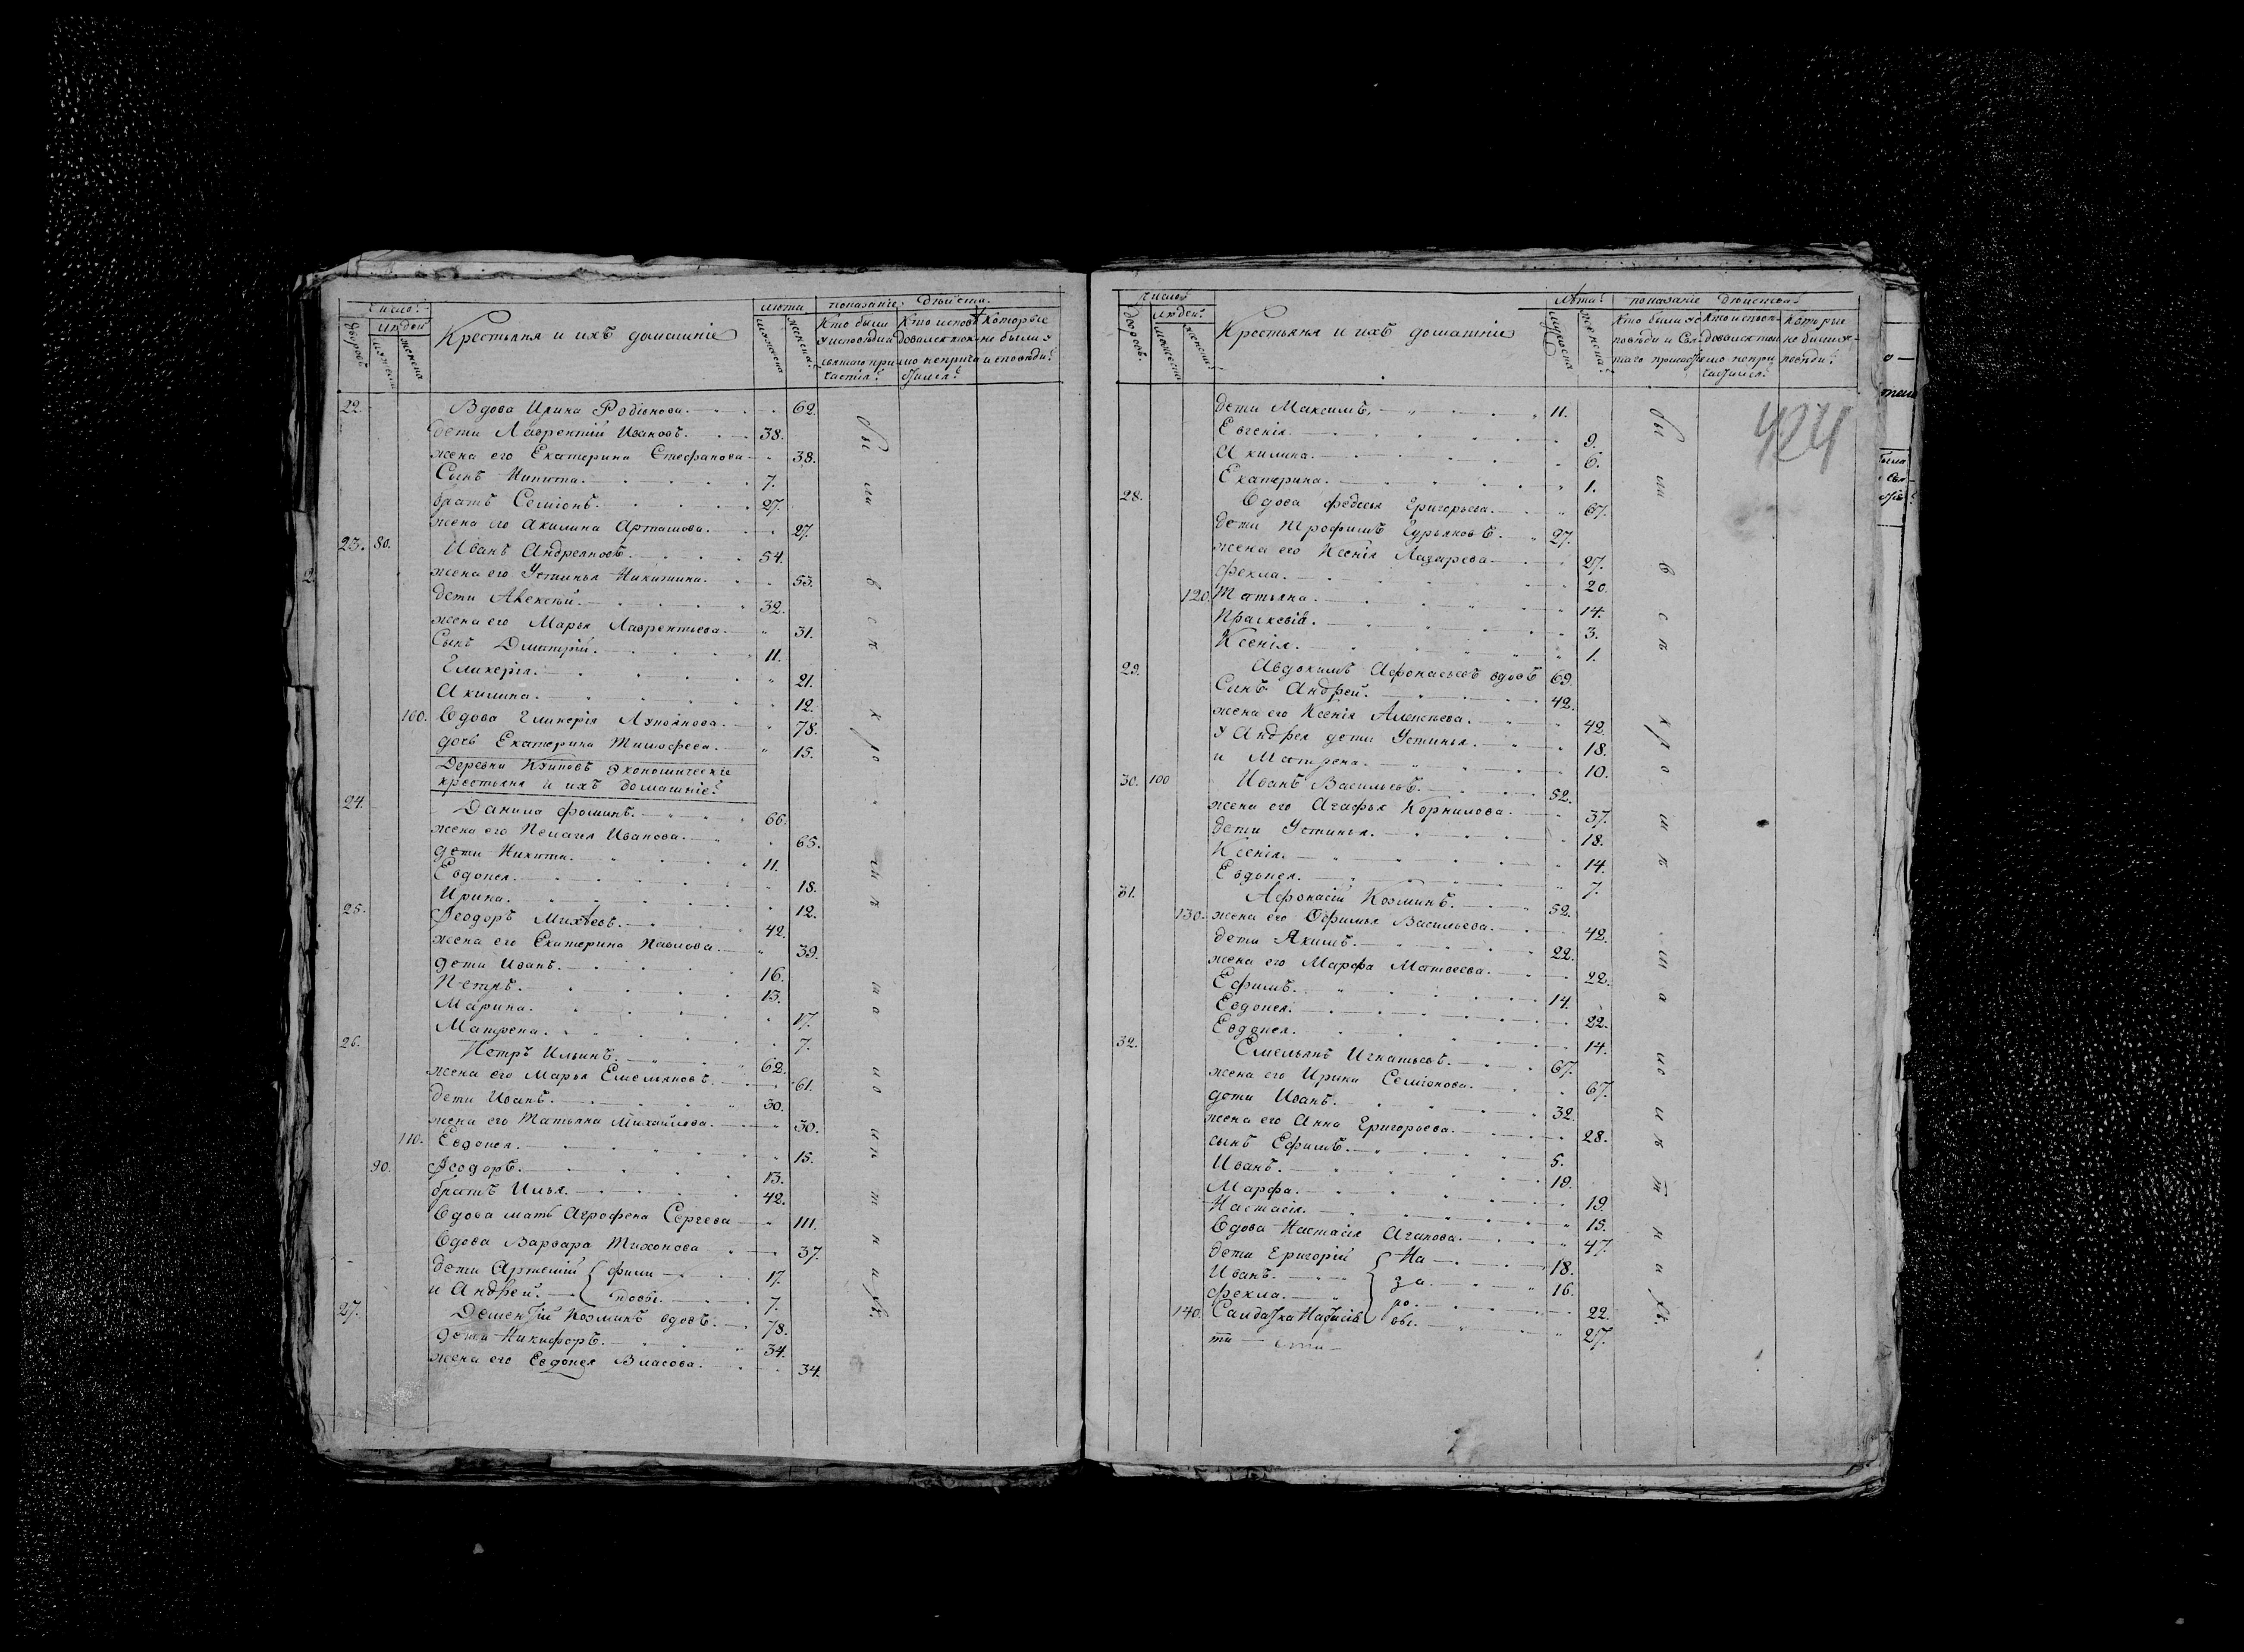 число.
людей
дворовъ
мужеска
женска
Крестьяня и ихъ домашніе
лѣта
мужеска
женска
показаніе дѣйства.
Кто были у исповѣди и святаго причастія.
Кто исповѣдовался токмо не причастился.
Которые не были у исповѣди.
22. Вдова Ирина Родіонова. 62.
дети Лаврентий Ивановъ. 38.
жена его Екатерина Стефанова 38.
Сынъ Никита. 7.
братъ Семіонъ. 27.
жена его Акилина Артамова. 27.
23. 80. Иванъ Андреяновъ. 54.
жена его Устинья Никитина. 53.
дети Алексѣй. 32.
жена его Марья Лаврентьева. 31.
Сынъ Дмитрій. 11.
Гликерія. 21.
Акилина. 12.
100. Вдова Гликерія Лупоянова. 78.
дочь Екатерина Тимофеева. 15.
Деревни экономическіе
крестьяня и ихъ домашніе.
24. Данила Фоминъ. 66.
жена его Пелагея Иванова. 65.
дети Никита. 11.
Евдокея. 18.
Ирина. 12.
25. Феодоръ Михѣевъ. 42.
жена его Екатерина Павлова. 39.
дети Иванъ. 16.
Петръ. 13.
Марина. 17.
Матрена. 7.
26. Петръ Ильинъ. 62.
жена его Марья Емельяновъ. 61.
дети Иванъ. 30.
жена его Татьяна Михайлова. 30.
110. Евдокея. 15.
90. Феодоръ. 13.
братъ Илья. 42.
Вдова мать Агрофена Сергеева 111.
Вдова Варвара Тихонова 37.
дети Артемій { Фили 17.
и Андрей. повы. 7.
27. Дементій Козминъ вдовъ. 78.
дети Никифоръ. 34.
жена его Евдокея Власова. 34.
Бы ли
число
людей.
дворовъ.
мужеска
женска
Крестьяня и ихъ домашніе
лѣта.
женска.
показаніе дѣйства.
424
дети Максимъ. 11.
Евгенія. 9.
Акилина. 6.
Екатерина. 1.
28. Вдова Федосья Григорьева. 67.
дети Трофимъ Гурьяновъ. 27.
жена его Ксенія Лазарева. 27.
Фекла. 20.
120. Татьяна. 14.
Прасковіа. 3.
Ксенія. 1.
29. Авдокимъ Афонасьевъ вдовъ 69.
Сынъ Андрей. 42.
жена его Ксенія Алексѣева. 42.
у Андрея дети Устинья. 18.
и Матрена. 10.
30. 100 Иванъ Васильевъ. 52.
жена его Агафья Корнилова. 37.
дети Устинья. 18.
Ксенія. 14.
Евдокея. 7.
31. Афонасій Козминъ. 52.
130. жена его Офимья Васильева. 42.
дети Якимъ. 22.
жена его Марфа Матвеева. 22.
Ефимъ. 14.
Евдокея. 22.
Евдокея. 14.
32. Емельянъ Игнатьевъ. 67.
жена его Ирина Семіонова. 67.
дети Иванъ. 32.
жена его Анна Григорьева. 28.
сынъ Ефимъ. 5.
Иванъ. 18.
Марфа. 19.
Настасія. 15.
Вдова Настасія Агапова. 47.
дети Григорій { На 18.
Иванъ. за 16.
Фекла. ро. 22.
140. Салдатка вы. 27.
Бы ли